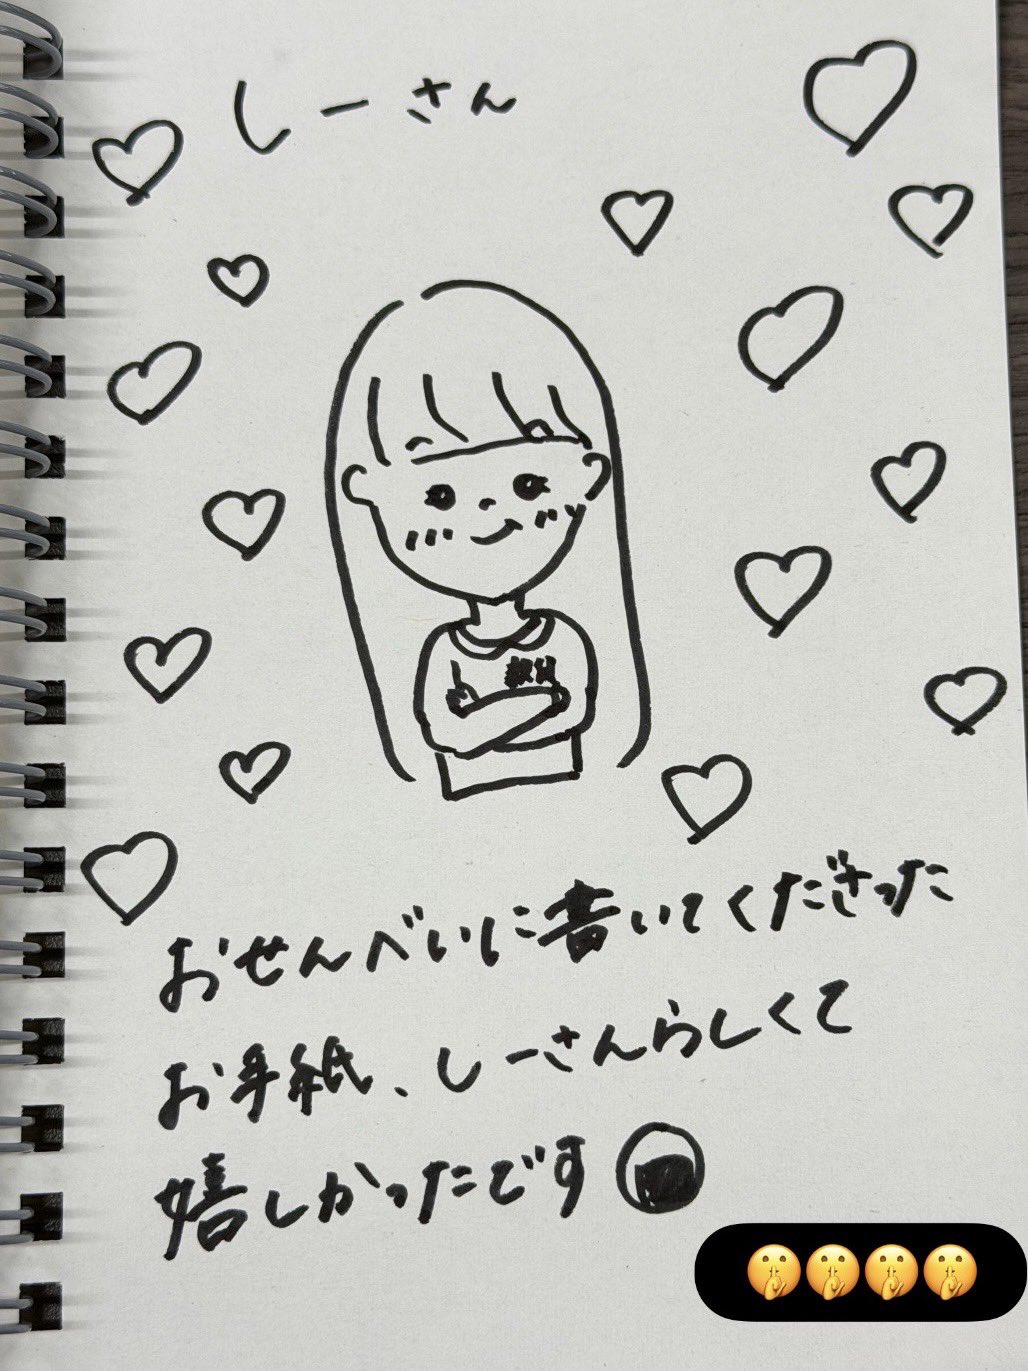 しーさん
おせんべいに書いてくださった
お手紙、しーさんらしくて
嬉しかったです